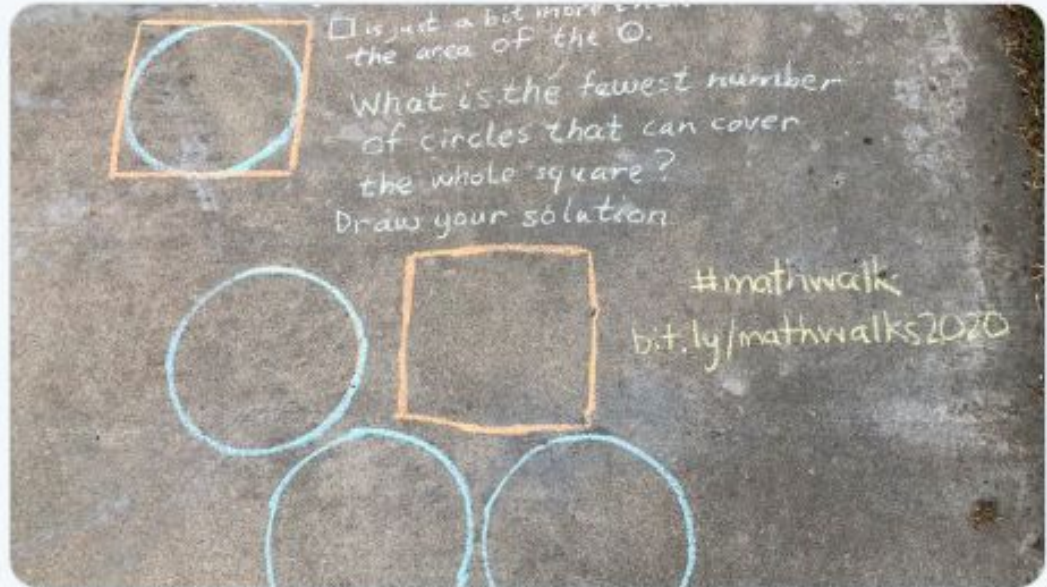 □ is just a bit more than
the area of the ⊙.
What is the fewest number
of circles that can cover
the whole square?
Draw your solution
#mathwalk
bit.ly/mathwalks2020